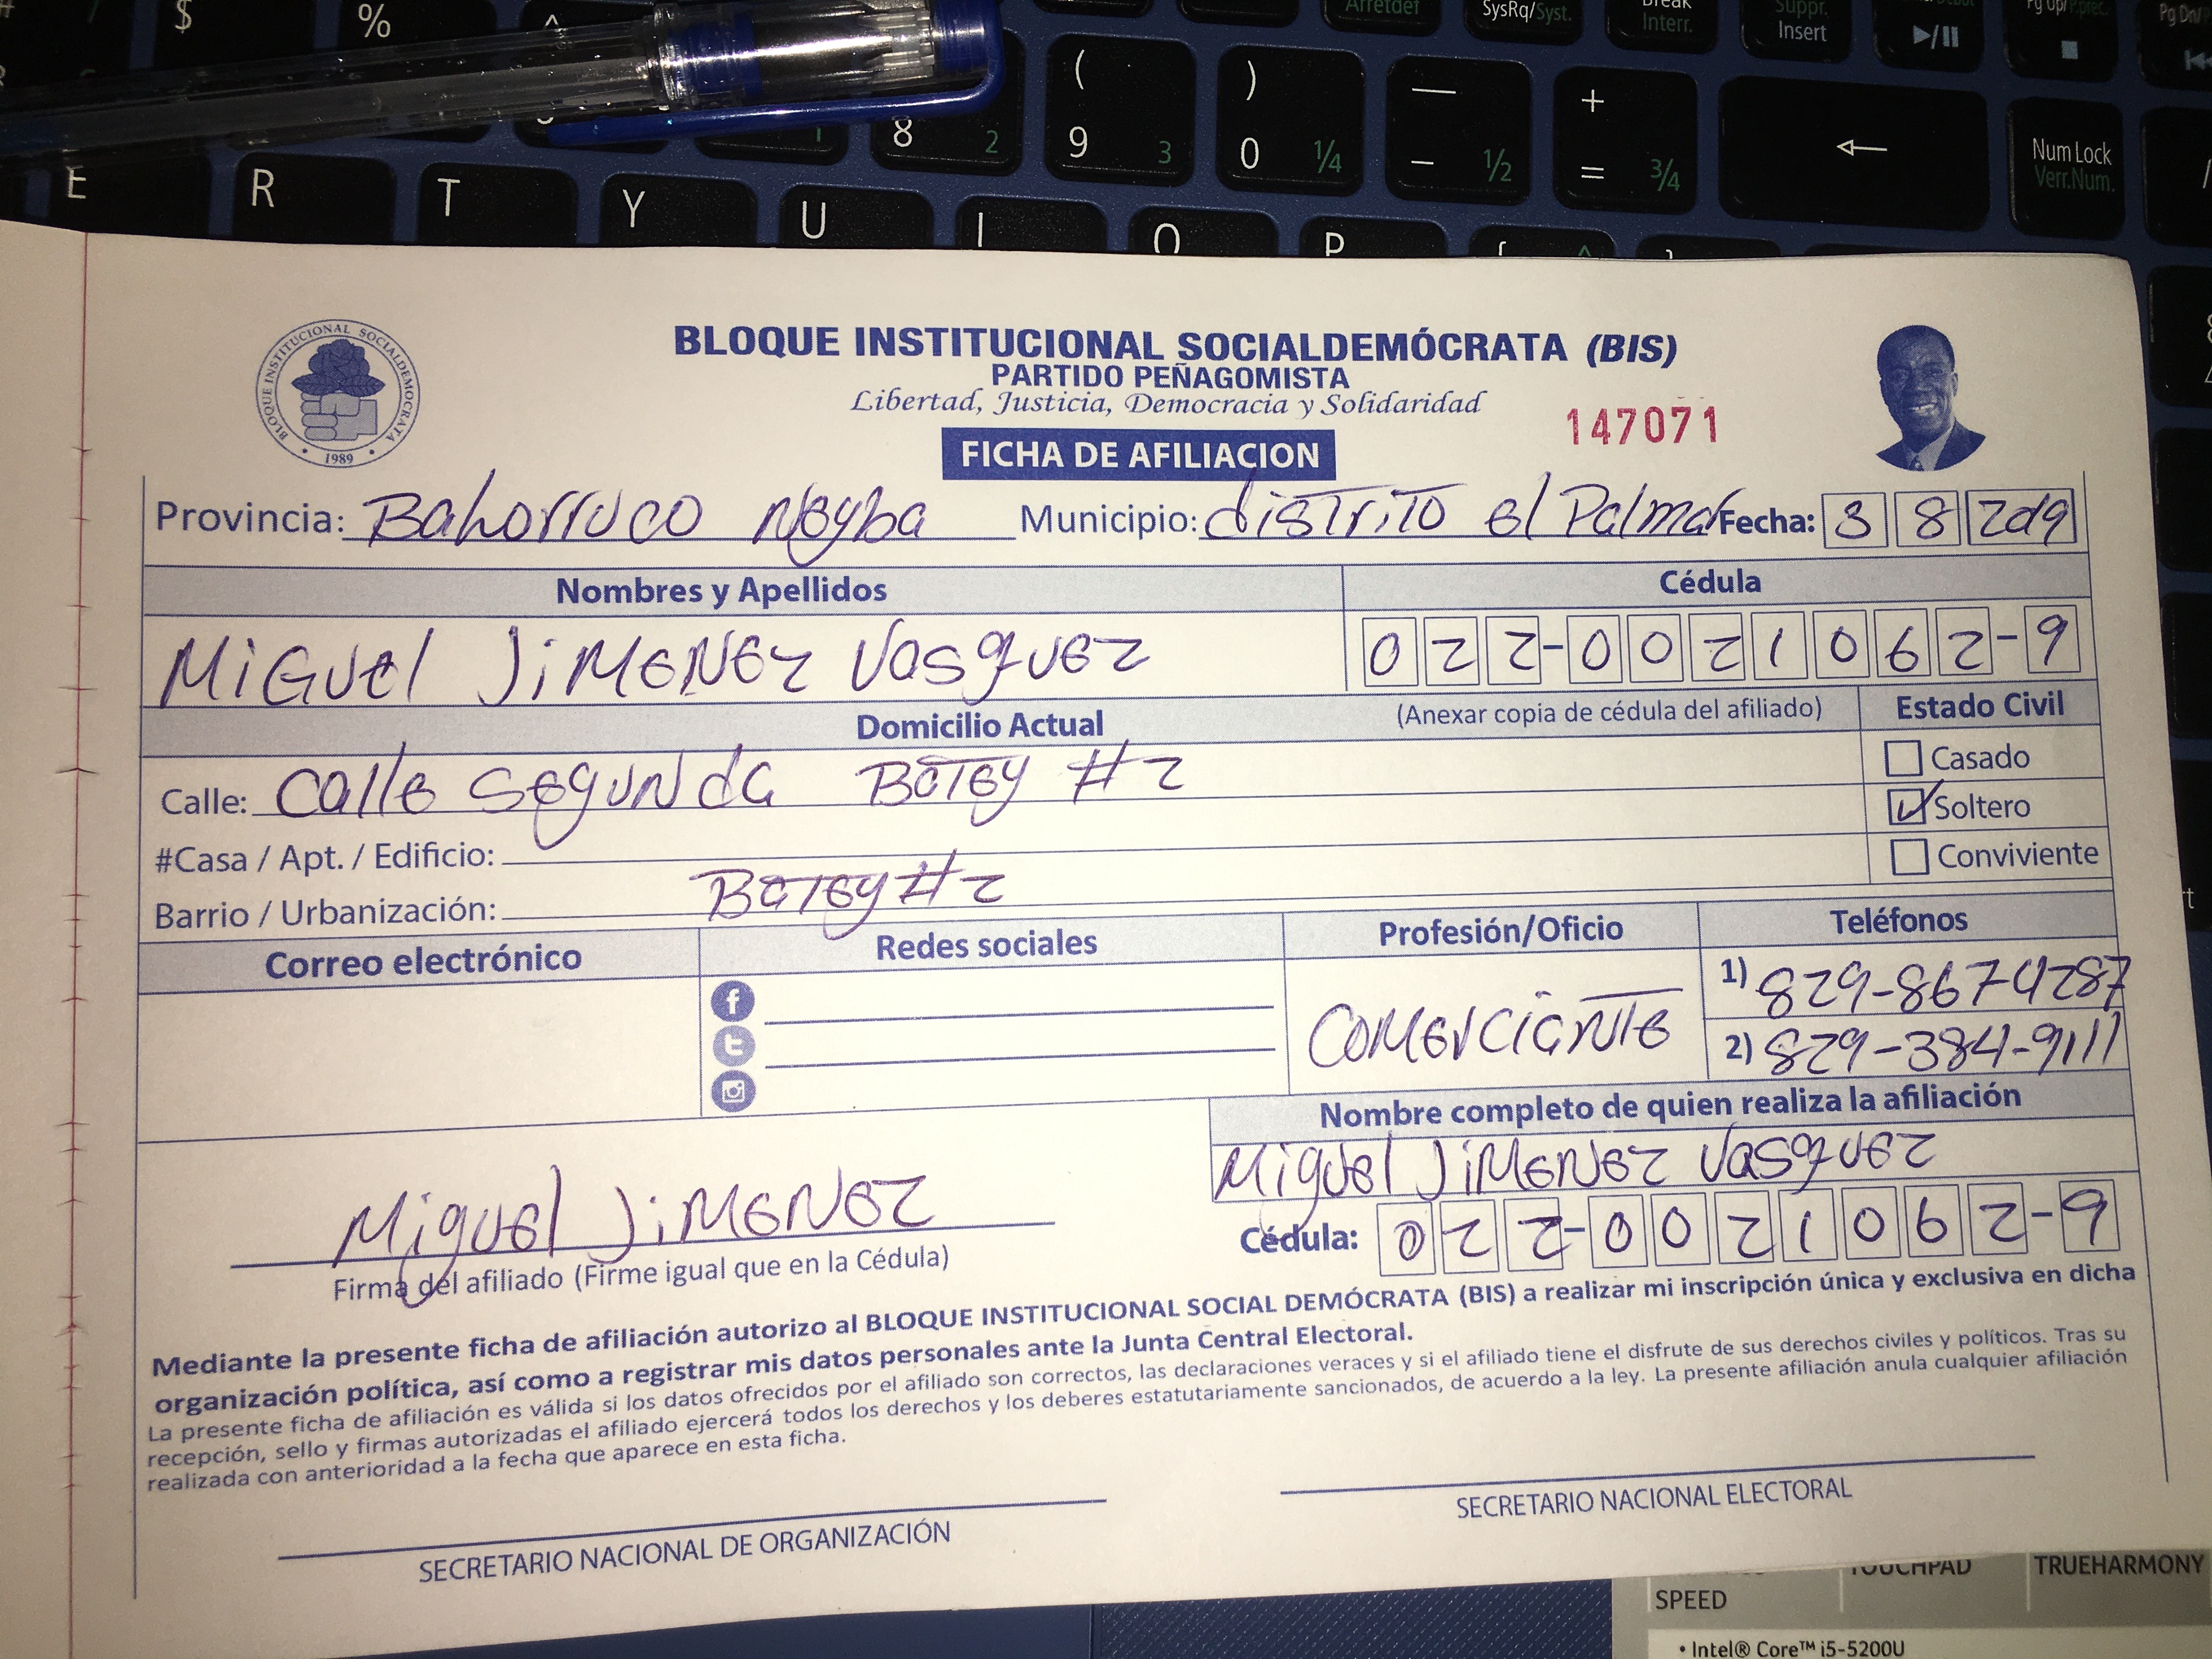 $ %
Arretdef SysRq/Syst. Break Interr. Suppr. Insert Pg Up/P.prec. Pg Dn/
8 2 ( 9 3 ) 0 1/4 — - 1/2 + = 3/4 Num Lock Verr.Num.
E R T Y U I O P [
BLOQUE INSTITUCIONAL SOCIALDEMOCRATA
1989
BLOQUE INSTITUCIONAL SOCIALDEMÓCRATA (BIS)
PARTIDO PEÑAGOMISTA
Libertad, Justicia, Democracia y Solidaridad
147071
FICHA DE AFILIACION
Provincia: Bahorruco Neyba Municipio: distrito el Palmar Fecha: 3 8 2019
Nombres y Apellidos Cédula
MiGuel JiMeNez Vasquez 022-0021062-9
Domicilio Actual (Anexar copia de cédula del afiliado) Estado Civil
Calle: Calle Segunda Batey #2 Casado
Soltero
#Casa / Apt. / Edificio: Conviviente
Barrio / Urbanización: Batey #2
Correo electrónico Redes sociales Profesión/Oficio Teléfonos
Comerciante 1) 829-8674287
2) 829-384-9111
Nombre completo de quien realiza la afiliación
Miguel JiMeNez Vasquez
Cédula: 022-0021062-9
Miguel JiMeNez
Firma del afiliado (Firme igual que en la Cédula)
Mediante la presente ficha de afiliación autorizo al BLOQUE INSTITUCIONAL SOCIAL DEMÓCRATA (BIS) a realizar mi inscripción única y exclusiva en dicha
organización política, así como a registrar mis datos personales ante la Junta Central Electoral.
La presente ficha de afiliación es válida si los datos ofrecidos por el afiliado son correctos, las declaraciones veraces y si el afiliado tiene el disfrute de sus derechos civiles y políticos. Tras su
recepción, sello y firmas autorizadas el afiliado ejercerá todos los derechos y los deberes estatutariamente sancionados, de acuerdo a la ley. La presente afiliación anula cualquier afiliación
realizada con anterioridad a la fecha que aparece en esta ficha.
SECRETARIO NACIONAL DE ORGANIZACIÓN SECRETARIO NACIONAL ELECTORAL
SPEED TOUCHPAD TRUEHARMONY
• Intel® Core™ i5-5200U